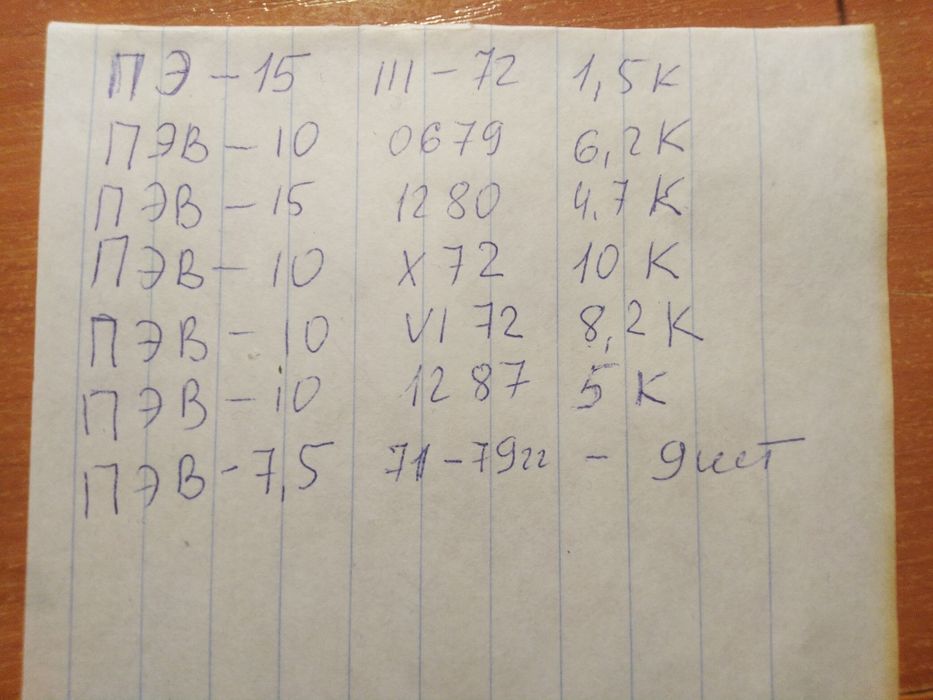 ПЭ - 15 III - 72 1,5 К
ПЭВ - 10 0679 6,2 К
ПЭВ - 15 1280 4.7 К
ПЭВ - 10 X 72 10 К
ПЭВ - 10 VI 72 8,2 К
ПЭВ - 10 1287 5 К
ПЭВ - 7,5 71 - 79гг - 9шт